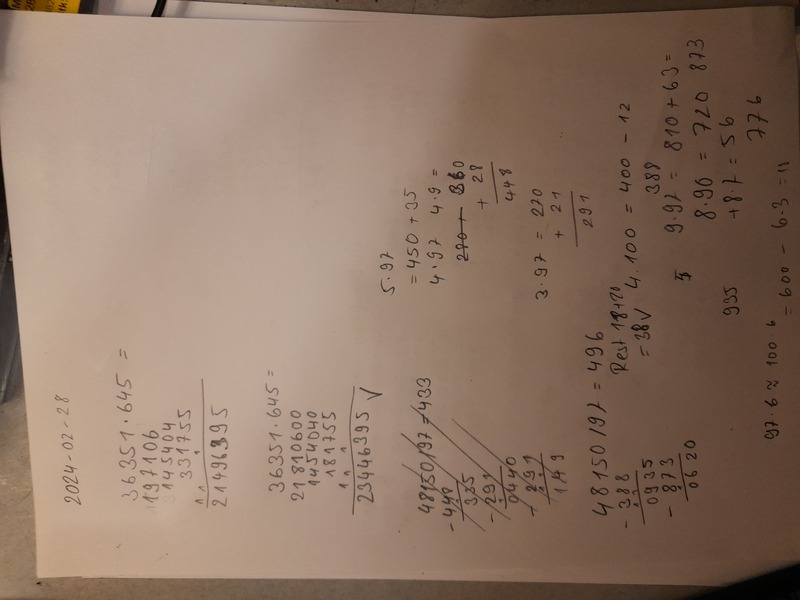 2024-02-28
36351·645=
197106
145404
331755
21496395
36351·645=
21810600
1454040
181755
23446395 √
48150/97=433
-448
335
-291
0440
-291
149
48150/97=496
-388
0935
-873
0620
Rest 18+20
=38√
5·97
=450+35
4·97 4·9=
270+ 360
+ 28
448
3·97=270
+ 21
291
4·100=400-12
388
9·97=810+63=
873
8·90=720
+8·7=56
776
935
97·6≈100·6
=600-6·3=11